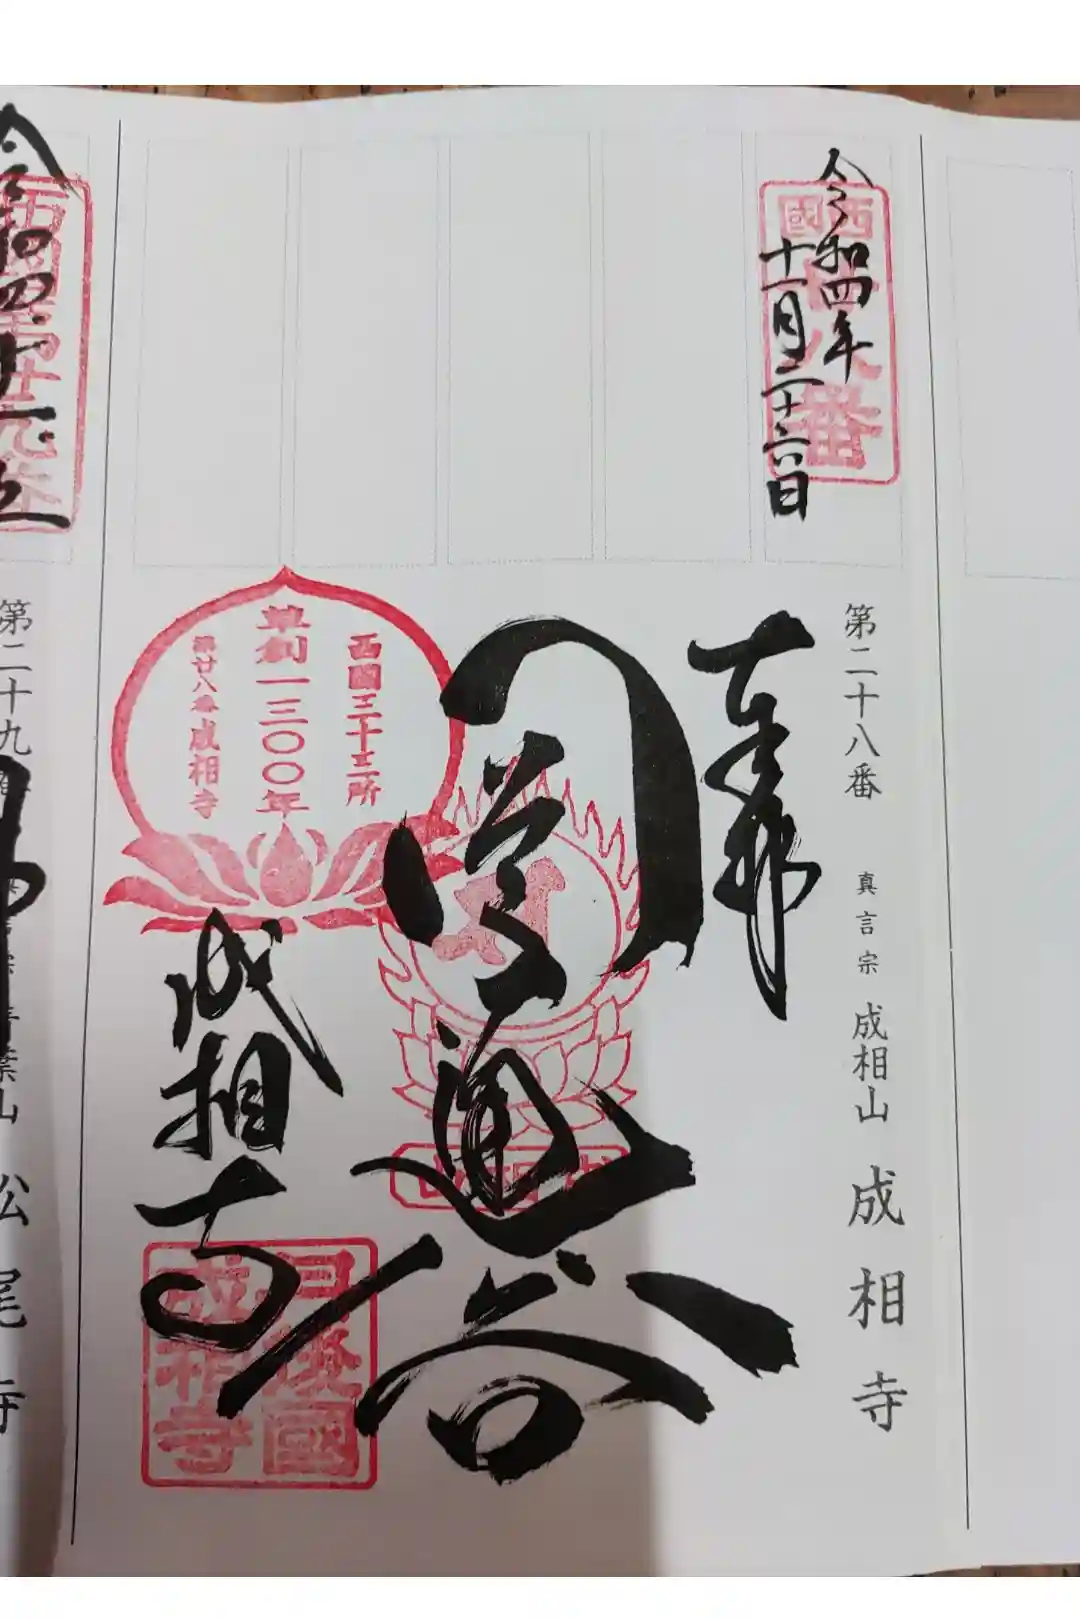 令和四年
十一月二十三日
西國
廿八番
第二十八番 真言宗 成相山 成相寺
奉拝
圓通谷
西国三十三所
草創一三〇〇年
第廿八番成相寺
成相寺
丹後國
成相寺
第二十九
松尾寺